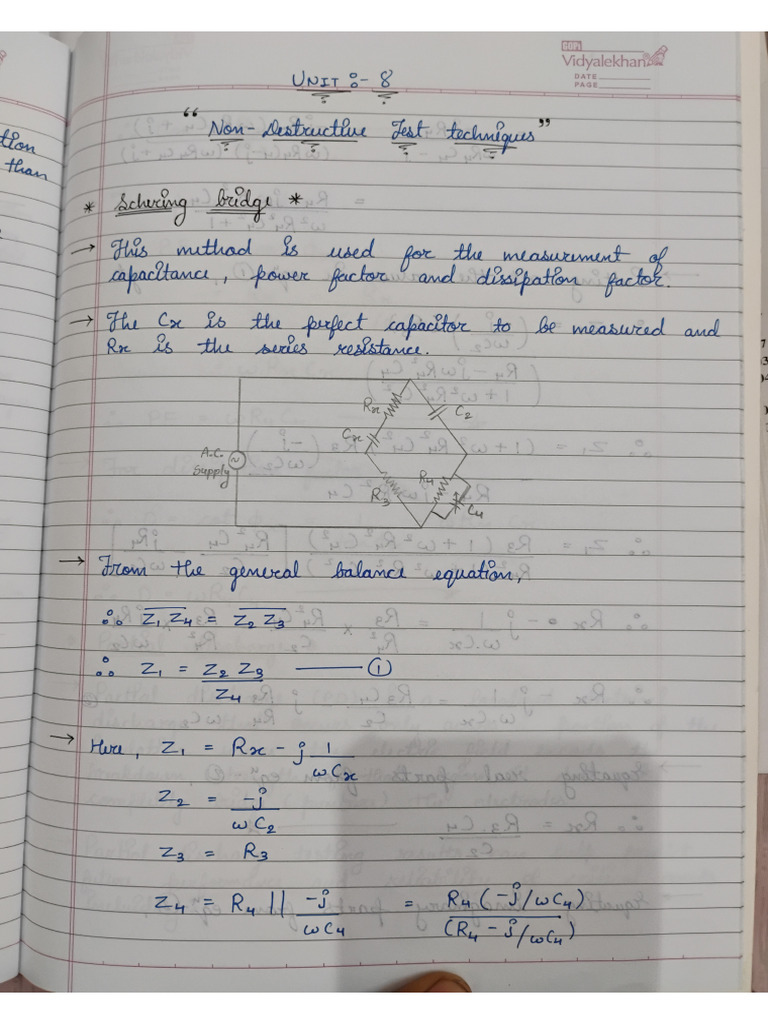 COPY
Vidyalekhan
DATE
PAGE
UNIT :- 8
"Non-Destructive Test techniques"
* Schering bridge *
→ This method is used for the measurement of
capacitance, power factor and dissipation factor.
→ The Cx is the perfect capacitor to be measured and
Rx is the series resistance.
Rx
C2
Cx
A.C.
Supply
~
R3
R4
C4
→ From the general balance equation,
∴ Z1 Z4 = Z2 Z3
∴ Z1 = Z2 Z3 / Z4 ——— ①
→ Here, Z1 = Rx - j 1/ωCx
Z2 = -j/ωC2
Z3 = R3
Z4 = R4 || -j/ωC4 = R4 (-j/ωC4) / (R4 - j/ωC4)
tion
than